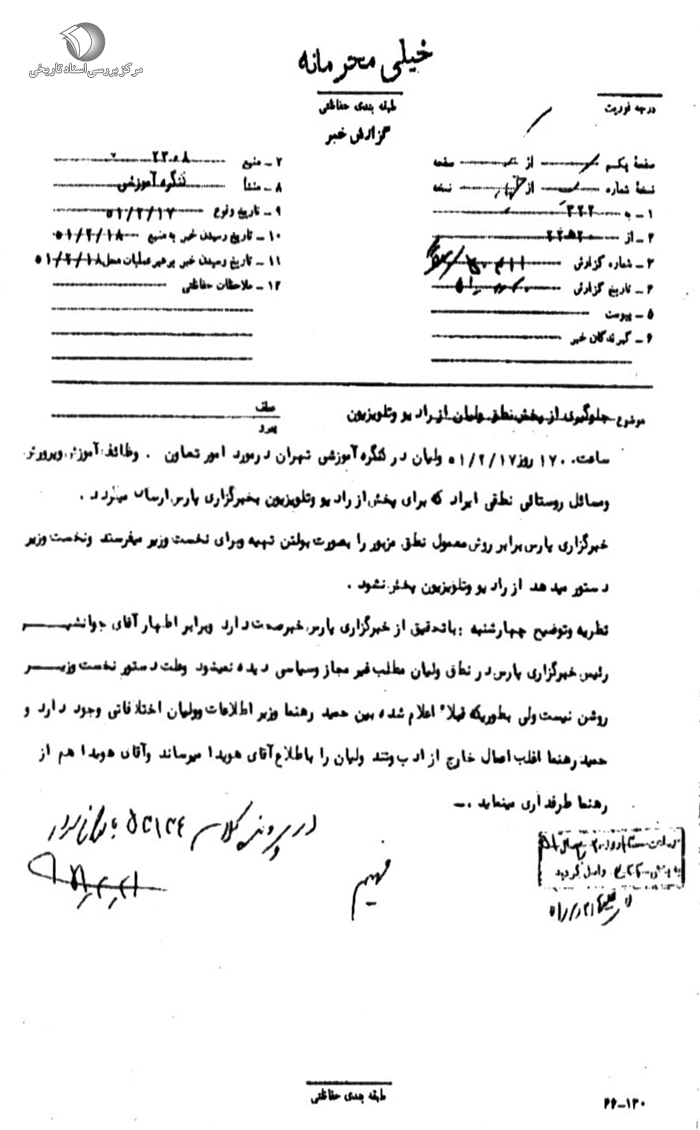 مرکز بررسی اسناد تاریخی
خیلی محرمانه
طبقه بندی حفاظتی
گزارش خبر
درجه فوریت
صفحهٔ یکم از صفحه
نسخهٔ شماره از نسخه
۱ ـ به ۳۲۲
۲ ـ از
۳ ـ شماره گزارش
۴ ـ تاریخ گزارش
۵ ـ پیوست
۶ ـ گیرندگان خبر
۷ ـ منبع ۲۳۰۸
۸ ـ منشأ کنگره آموزشی
۹ ـ تاریخ وقوع ۵۱/۲/۱۷
۱۰ ـ تاریخ رسیدن خبر به منبع ۵۱/۲/۱۸
۱۱ ـ تاریخ رسیدن خبر برهبر عملیات محل ۵۱/۲/۱۸
۱۲ ـ ملاحظات حفاظتی
موضوع جلوگیری از پخش نطق ولیان از رادیو وتلویزیون
عطف
پیرو
ساعت ۱۷۰ روز ۵۱/۲/۱۷ ولیان در کنگره آموزشی تهران درمورد امور تعاون . وظائف آموزش وپرورش
ومسائل روستائی نطقی ایراد که برای پخش از رادیو وتلویزیون بخبرگزاری پارس ارسال میگردد .
خبرگزاری پارس برابر روش معمول نطق مزبور را بصورت بولتن تهیه وبرای نخست وزیر میفرستد ونخست وزیر
دستور میدهد از رادیو وتلویزیون پخش نشود .
نظریه وتوضیح چهارشنبه : باتحقیق از خبرگزاری پارس خبرصحت دارد وبرابر اظهار آقای جوانشیر
رئیس خبرگزاری پارس در نطق ولیان مطلب غیر مجاز وسیاسی دیده نمیشود وعلت دستور نخست وزیر
روشن نیست ولی بطوریکه قبلاً اعلام شده بین حمید رهنما وزیر اطلاعات وولیان اختلافاتی وجود دارد و
حمید رهنما اغلب اعمال خارج از ادب وتند ولیان را باطلاع آقای هویدا میرساند وآقای هویدا هم از
رهنما طرفداری مینماید .ــ
در پرونده کلاسه ۵۲۱۲۴
فهیم
واصل گردید
طبقه بندی حفاظتی
۶۶-۱۲۰